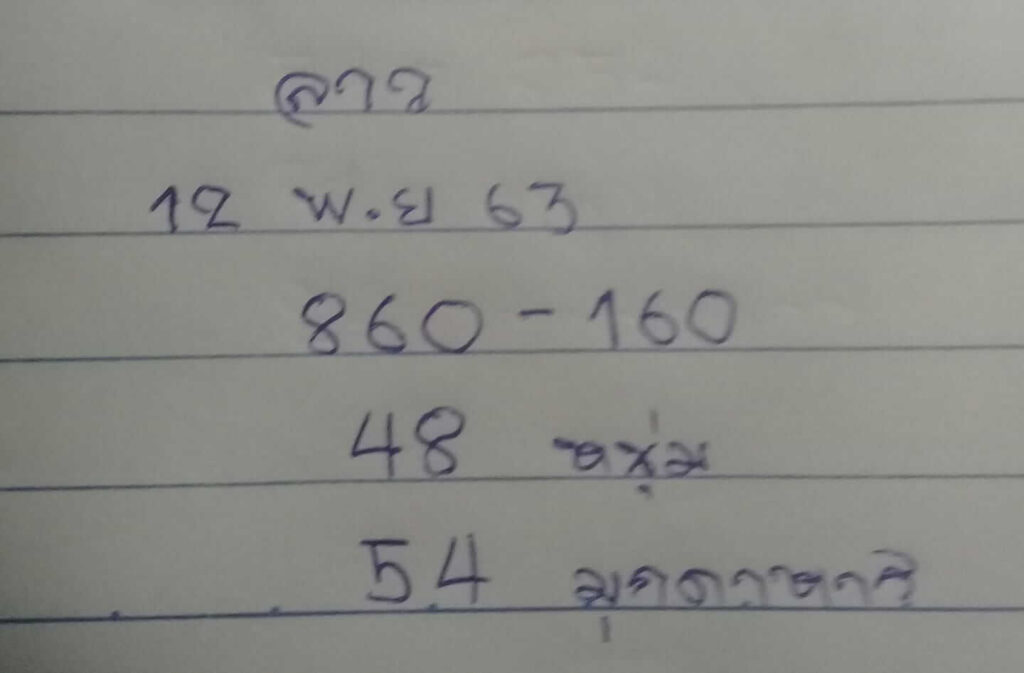 ลาว
12 พ.ย 63
860 - 160
48
54 มุกดาหาร